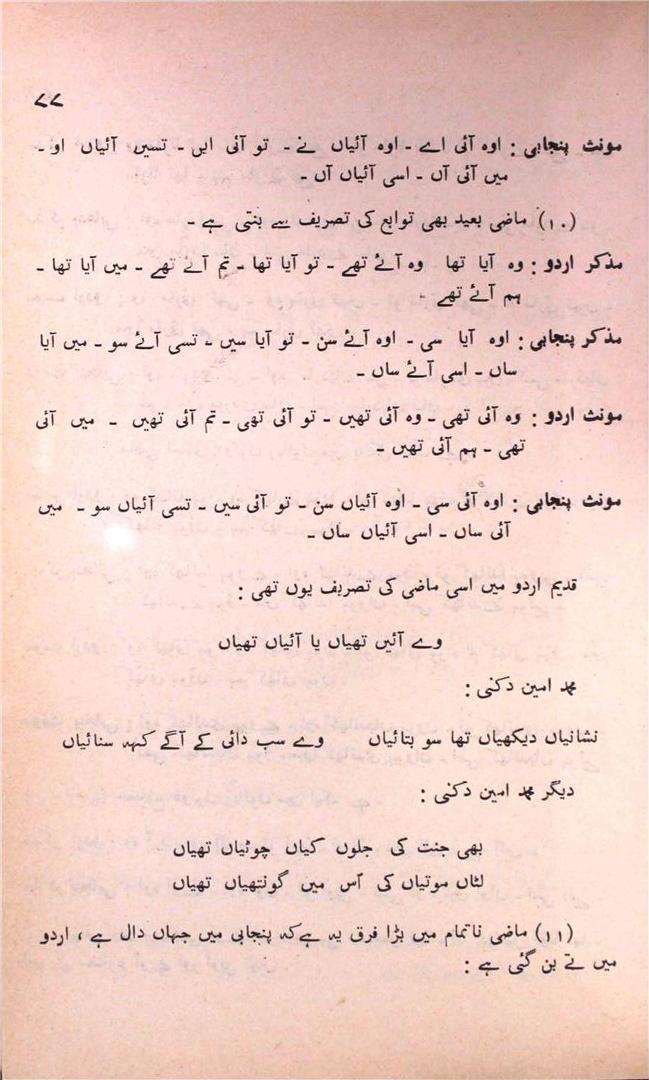 ۷۷
مونث پنجابی : اوہ آئی اے ۔ اوہ آئیاں نے ۔ تو آئی ایں ۔ تسیں آئیاں او ۔
میں آئی آں ۔ اسی آئیاں آں ۔
(۱۰) ماضی بعید بھی توابع کی تصریف سے بنتی ہے ۔
مذکر اردو : وہ آیا تھا وہ آئے تھے ۔ تو آیا تھا ۔ تم آے تھے ۔ میں آیا تھا ۔
ہم آئے تھے ۔
مذکر پنجابی : اوہ آیا سی ۔ اوہ آئے سن ۔ تو آیا سیں ۔ تسی آئے سو ۔ میں آیا
ساں ۔ اسی آئے ساں ۔
مونث اردو : وہ آئی تھی ۔ وہ آئی تھیں ۔ تو آئی تھی ۔ تم آئی تھیں ۔ میں آئی
تھی ۔ ہم آئی تھیں ۔
مونث پنجابی : اوہ آئی سی ۔ اوہ آئیاں سن ۔ تو آئی سیں ۔ تسی آئیاں سو ۔ میں
آئی ساں ۔ اسی آئیاں ساں ۔
قدیم اردو میں اسی ماضی کی تصریف یوں تھی :
وے آئیں تھیاں یا آئیاں تھیاں
محمد امین دکنی :
نشانیاں دیکھیاں تھا سو بتائیاں وے سب دائی کے آگے کہہ سنائیاں
دیگر محمد امین دکنی :
بھی جنت کی جلوں کیاں چوٹیاں تھیاں
لٹاں موتیاں کی اس میں گونتھیاں تھیاں
(۱۱) ماضی ناتمام میں بڑا فرق یہ ہےکہ پنجابی میں جہاں دال ہے ، اردو
میں تے بن گئی ہے :